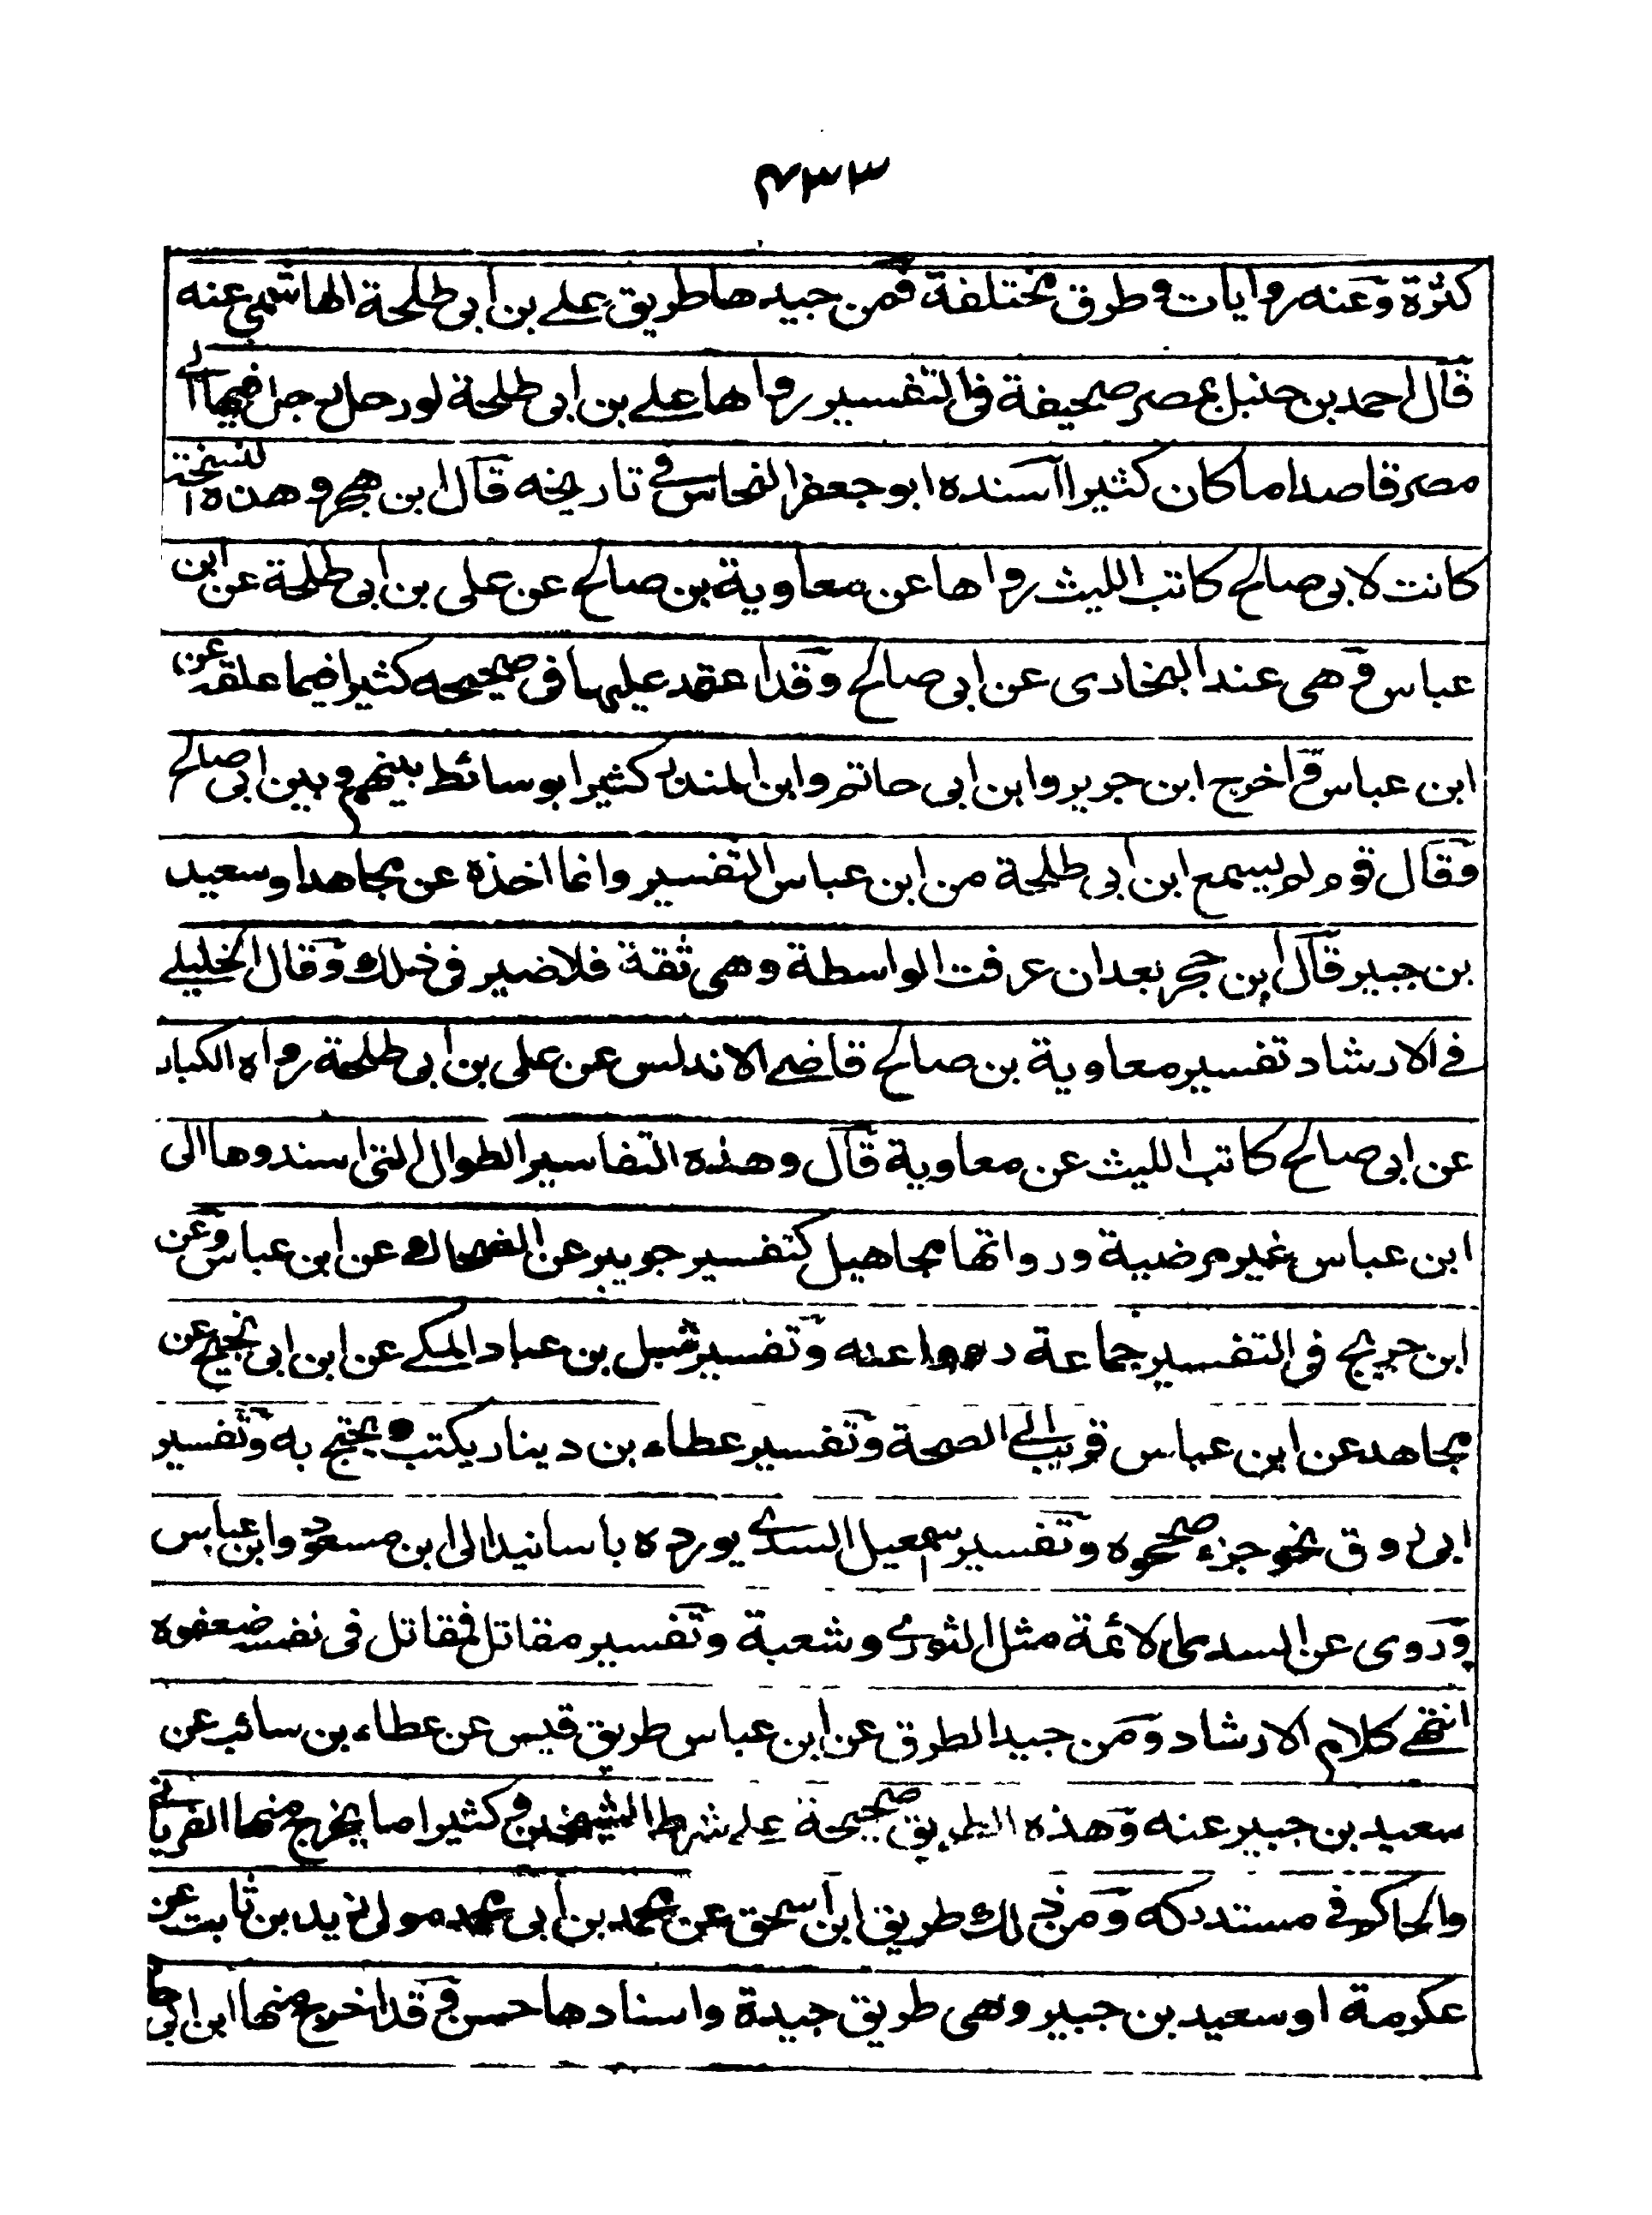 ٤٣٣
كثرة وعنه روايات وطرق مختلفة فمن جيدها طريق علي بن ابي طلحة الهاشمي عنه
قال احمد بن حنبل بمصر صحيفة في التفسير رواها علي بن ابي طلحة لو رحل رجل فيها الى
مصر قاصدا ما كان كثيرا اسنده ابو جعفر النحاس في تاريخه قال ابن حجر وهذه النسخة
كانت لابي صالح كاتب الليث رواها عن معاوية بن صالح عن علي بن ابي طلحة عن ابن
عباس وهي عند البخارى عن ابي صالح وقد اعتمد عليها في صحيحه كثيرا فيما علقه عن
ابن عباس واخرج ابن جرير وابن ابي حاتم وابن المنذر كثيرا بوسائط بينهم وبين ابي صالح
فقال قوم لم يسمع ابن ابي طلحة من ابن عباس التفسير وانما اخذه عن مجاهد او سعيد
بن جبير قال ابن حجر بعد ان عرفت الواسطة وهي ثقة فلا ضير في ذلك وقال الخليلي
في الارشاد تفسير معاوية بن صالح قاضي الاندلس عن علي بن ابي طلحة رواه الكبار
عن ابي صالح كاتب الليث عن معاوية قال وهذه التفاسير الطوال التي اسندوها الى
ابن عباس غير مرضية ورواتها مجاهيل كتفسير جويبر عن الضحاك عن ابن عباس وعن
ابن جريج في التفسير جماعة رووا عنه وتفسير شبل بن عباد المكي عن ابن ابي نجيح عن
مجاهد عن ابن عباس قريب الى الصحة وتفسير عطاء بن دينار يكتب ويحتج به وتفسير
ابي روق نحو جزء صححوه وتفسير اسمعيل السدي يورده باسانيد الى ابن مسعود وابن عباس
وروى عن السدي الائمة مثل الثوري وشعبة وتفسير مقاتل فمقاتل في نفسه ضعفوه
انتهى كلام الارشاد ومن جيد الطرق عن ابن عباس طريق قيس عن عطاء بن سائب عن
سعيد بن جبير عنه وهذه الطريق صحيحة على شرط الشيخين وكثيرا ما يخرج منها الفريابي
والحاكم في مستدركه ومن ذلك طريق ابن اسحق عن محمد بن ابي محمد مولى زيد بن ثابت عن
عكرمة او سعيد بن جبير وهي طريق جيدة واسنادها حسن وقد اخرج منها ابن ابي حا